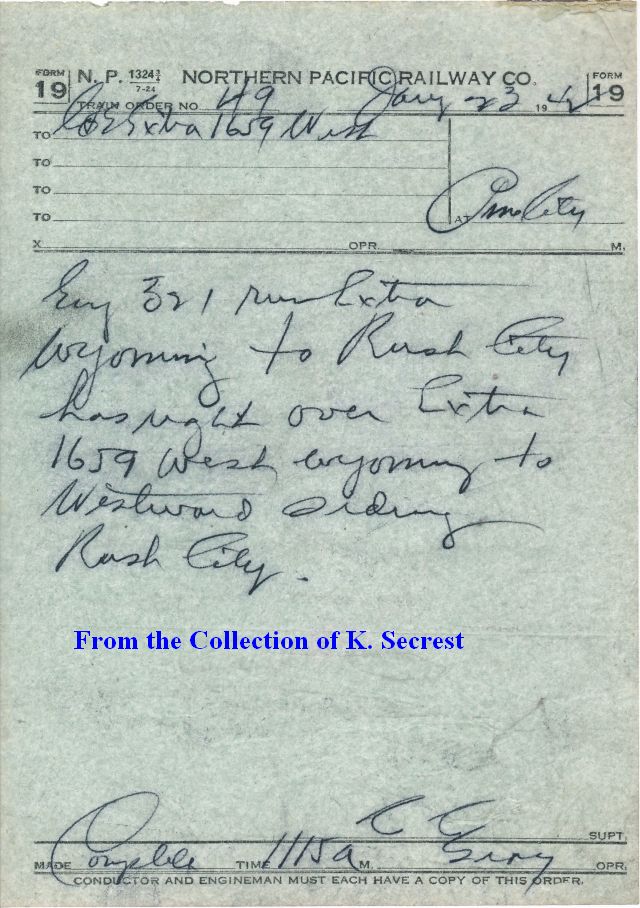 FORM 19 N. P. 1324 3/4 7-24 NORTHERN PACIFIC RAILWAY CO. FORM 19
TRAIN ORDER NO 49 Jany 23 1942
TO C&E Extra 1659 West
TO
TO
TO AT Pine City
X OPR. M.
Eng 321 run Extra
Wyoming to Rush City
has right over Extra
1659 West Wyoming to
Westward siding
Rush City.
From the Collection of K. Secrest
SUPT.
MADE Complete TIME 1115a M. OPR.
CONDUCTOR AND ENGINEMAN MUST EACH HAVE A COPY OF THIS ORDER.